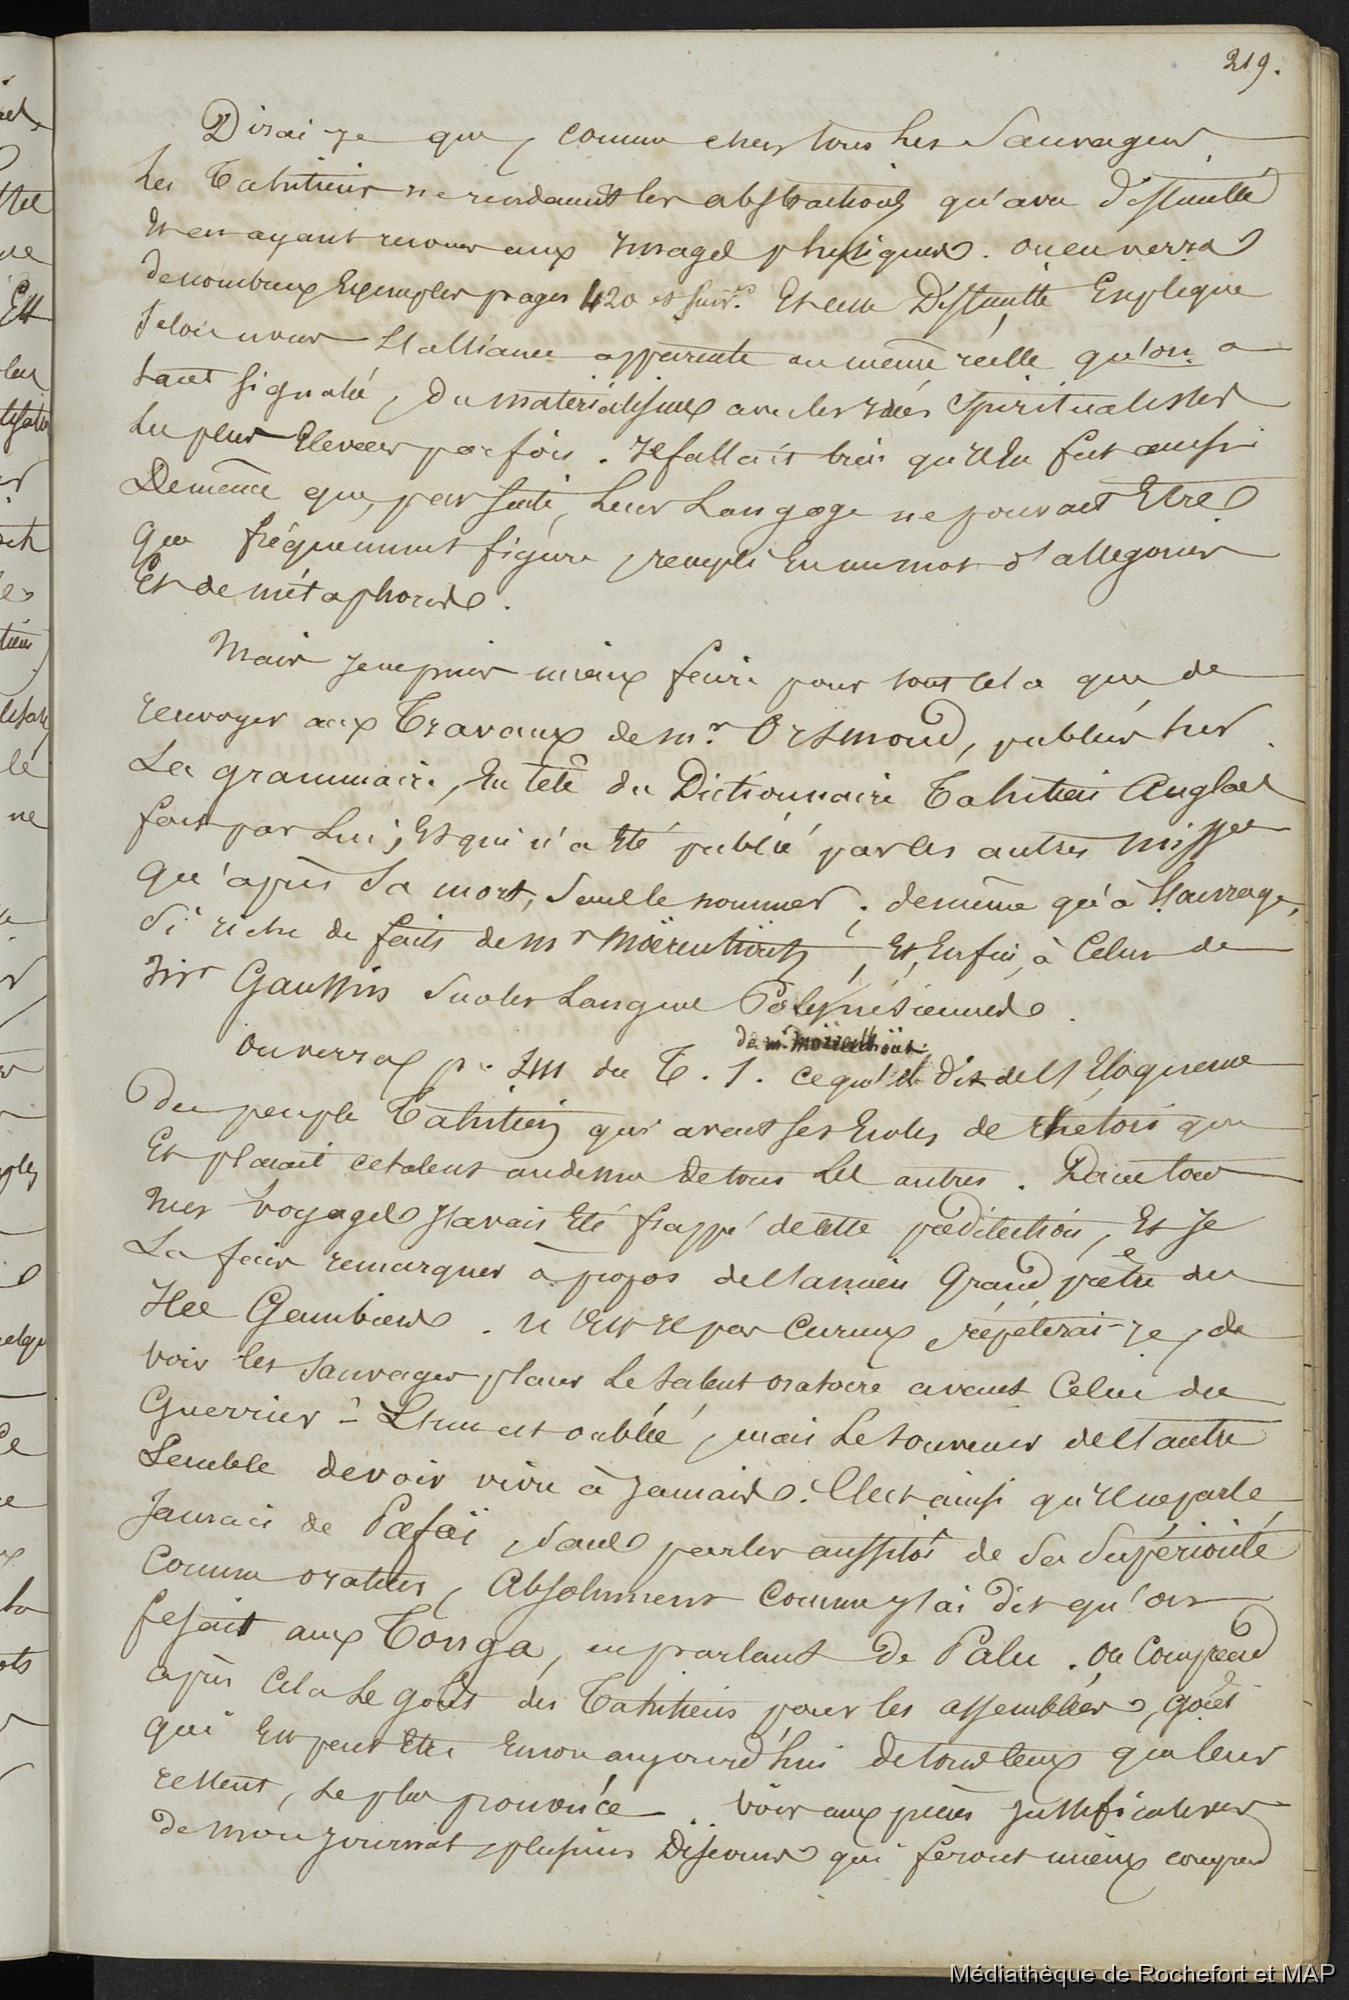 219.
Dirai-je que, comme chez tous les Sauvages,
les Tahitiens ne rendaient les abstractions qu'avec difficulté
et en ayant recours aux images physiques. on en verra
de nombreux Exemples pages 420 et suiv.es Et cette Difficulté Explique
selon nous l'alliance apparente ou même réelle qu'on a
tant signalé, du matérialisme avec les idées Spiritualistes
les plus Elevées parfois. il fallait bien qu'il en fut ainsi
De même que, par suite, leur Langage ne pouvait Etre
que fréquemment figuré, rempli en un mot d'allegories
Et de métaphores.
Mais je ne puis mieux faire pour tout cela que de
renvoyer aux Travaux de mr. Orsmond, publiés sur
La grammaire, En tête du Dictionnaire Tahitien Anglais
fait par Lui, Et qui n'a été publié par les autres miss.res
qu'après sa mort, sans le nommer; de même qu'à l'ouvrage,
si riche de faits de mr Moërenhout, Et, Enfin, à Celui de
mr Gaussin sur les Langues Polynésiennes.
on verra p. du T. 1. de mr. Moërenhout ce qu'il dit de l'Eloquence
Du peuple Tahitien qui avait ses Ecoles de rhétorique
Et plaçait ce talent au dessus de tous les autres. Dans tous
mes Voyages j'avais été frappé de cette prédilection, Et je
La fais remarquer à propos de l'ancien Grand prêtre des
Iles Gambier. N'est il pas Curieux, répéterai-je, de
voir les Sauvages, placer le talent oratoire avant Celui du
Guerrier - L'un est oublié, mais le souvenir de l'autre
Semble devoir vivre à jamais. C'est ainsi qu'on ne parle
Jamais de Pafaï, sans parler aussitôt de sa Supériorité
Comme orateur, Absolument comme j'ai dit qu'on
fesait aux Tonga, en parlant de Palu. On Comprend
après Cela le goût des Tahitiens pour les assemblées, goût
qui Est peut être Encore aujourd'hui de tous ceux qui leur
restent, le plus prononcé. Voir aux pièces justificatives
de mon journal, plusieurs Discours qui feront mieux comprend
Médiathèque de Rochefort et MAP